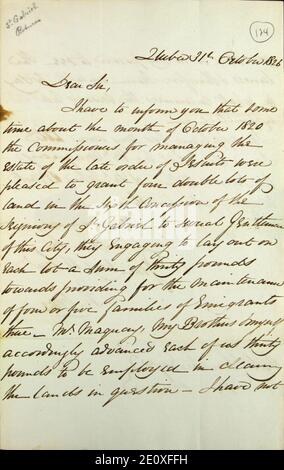 St Gabriel
134
Quebec 31st October 1826
Dear Sir,
I have to inform you that some
time about the month of October 1820
the Commissioners for managing the
Estate of the late order of Jesuits were
pleased to grant four double lots of
land in the Sixth Concession of the
Seigniory of St Gabriel to several Gentlemen
of this City, they engaging to lay out on
each lot a sum of thirty pounds
towards providing for the maintenance
of four or five Families of Emigrants
there - Mr. Maquay, my Brother & myself
accordingly advanced each of us thirty
pounds to be employed in clearing
the lands in question - I have not
alamy
Image ID: 2E0XFFH
www.alamy.com